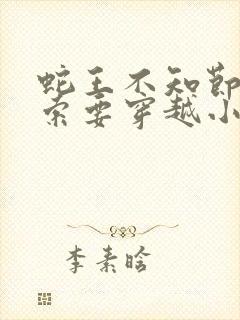 蛇王不知节
索要穿越小
李素晗